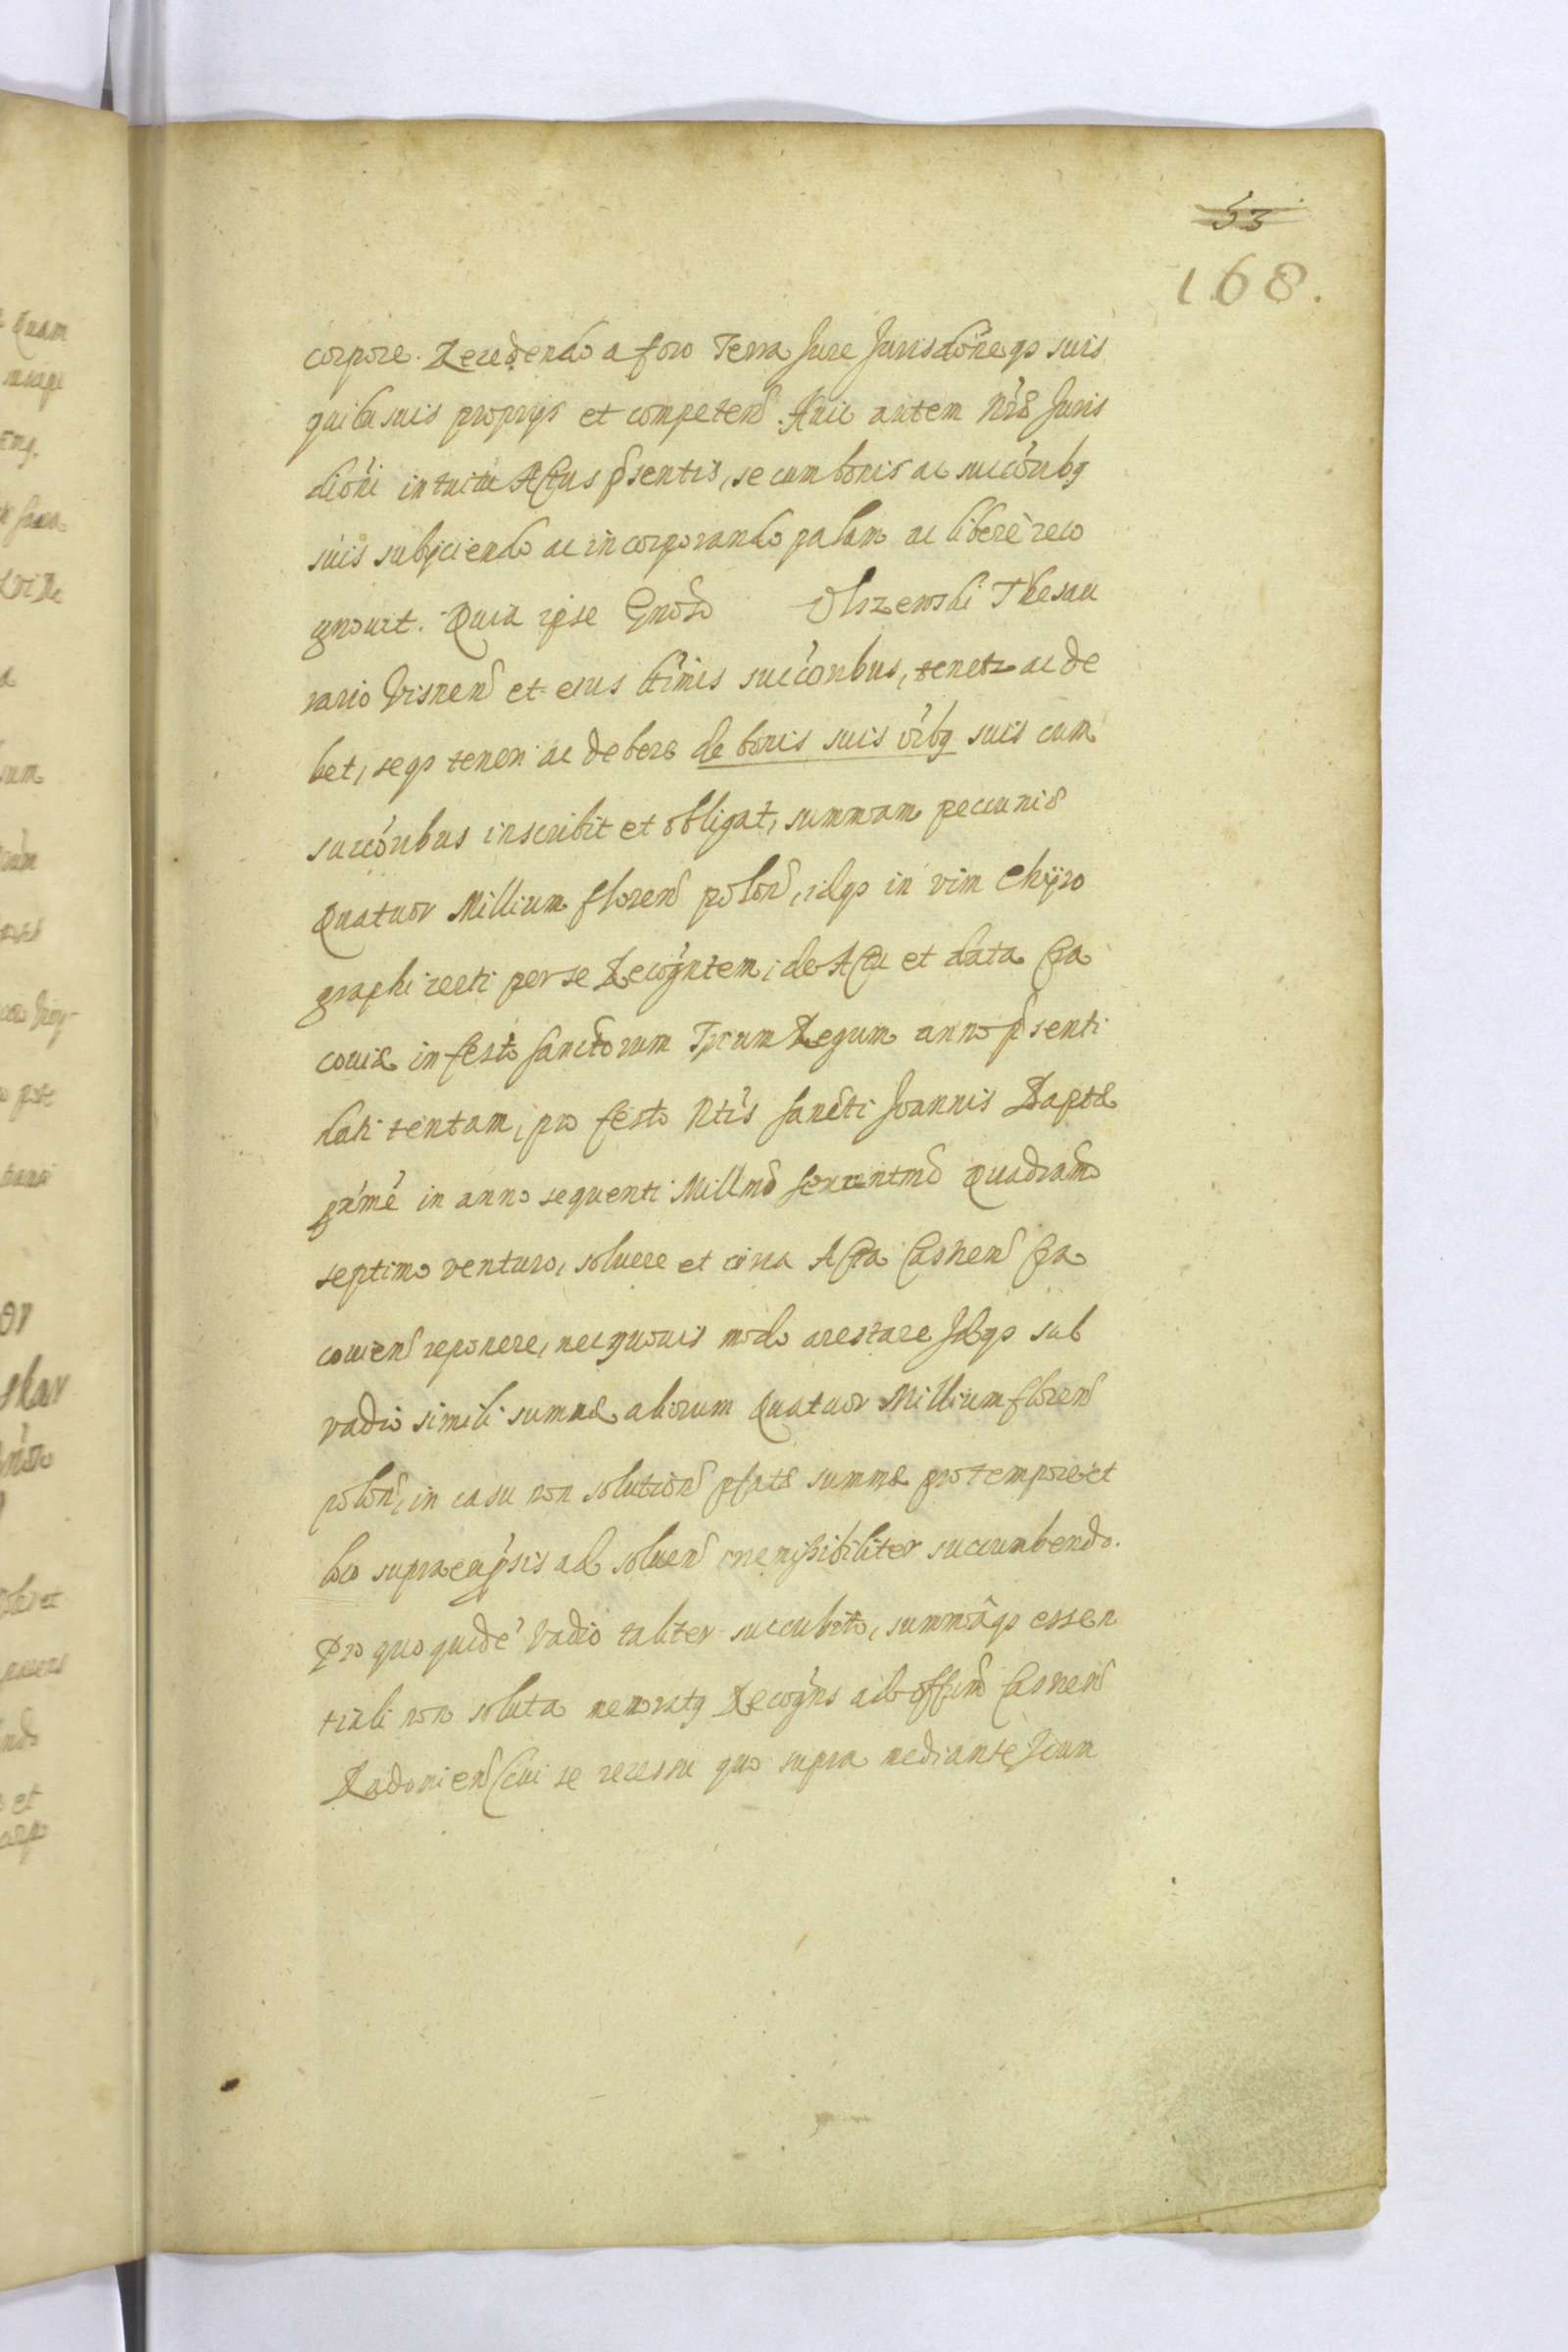 53
168.
corpore. Recedendo a foro Terra Jure Jurisdōneqȝ suis
quibusuis proprijs et competen̄ Huic autem Nr̄æ Juris
diōni intuitu Actus p̄sentis, se cum bonis ac succōribȝ
suis subijciendo ac incorporando palam ac liberè reco
gnouit. Quia ipse Gnōso Olszewski Thesau
rario Visnen̄ et eius ltīmis succōribus, tenetr ac de
bet, seqȝ teneri ac debere de bonis suis oībȝ suis cum
succōribus inscribit et obligat, summam pecuniæ
Quatuor Millium floren̄ polon̄, idqȝ in vim Chijro
graphi recti per se Recogn̄tem, de Actu et data Cra
couiæ in festo Sanctorum Trium Regum anno p̄senti
dati tentam, pro festo Ntīs Sancti Joannis Baptæ
prīme in anno sequenti Millmō sexcentmō Quadramō
septimo venturo, soluere et circa Acta Castren̄ Cra
couien̄ reponere, nec quouis modo arestare Idqȝ sub
vadio simili summæ aliorum Quatuor Millium floren̄
polon̄, in casu non solution̄ p̄fatæ summæ pro tempore et
loco supra exp̄sis ad soluen̄ irremissibiliter succumbendo.
Pro quo quidē vadio taliter succubito, summāqȝ essen
tiali non soluta memoratȝ Recogn̄s ad offm̄ Castren̄
Radomien̄ cui se recessu quo supra mediante, cum